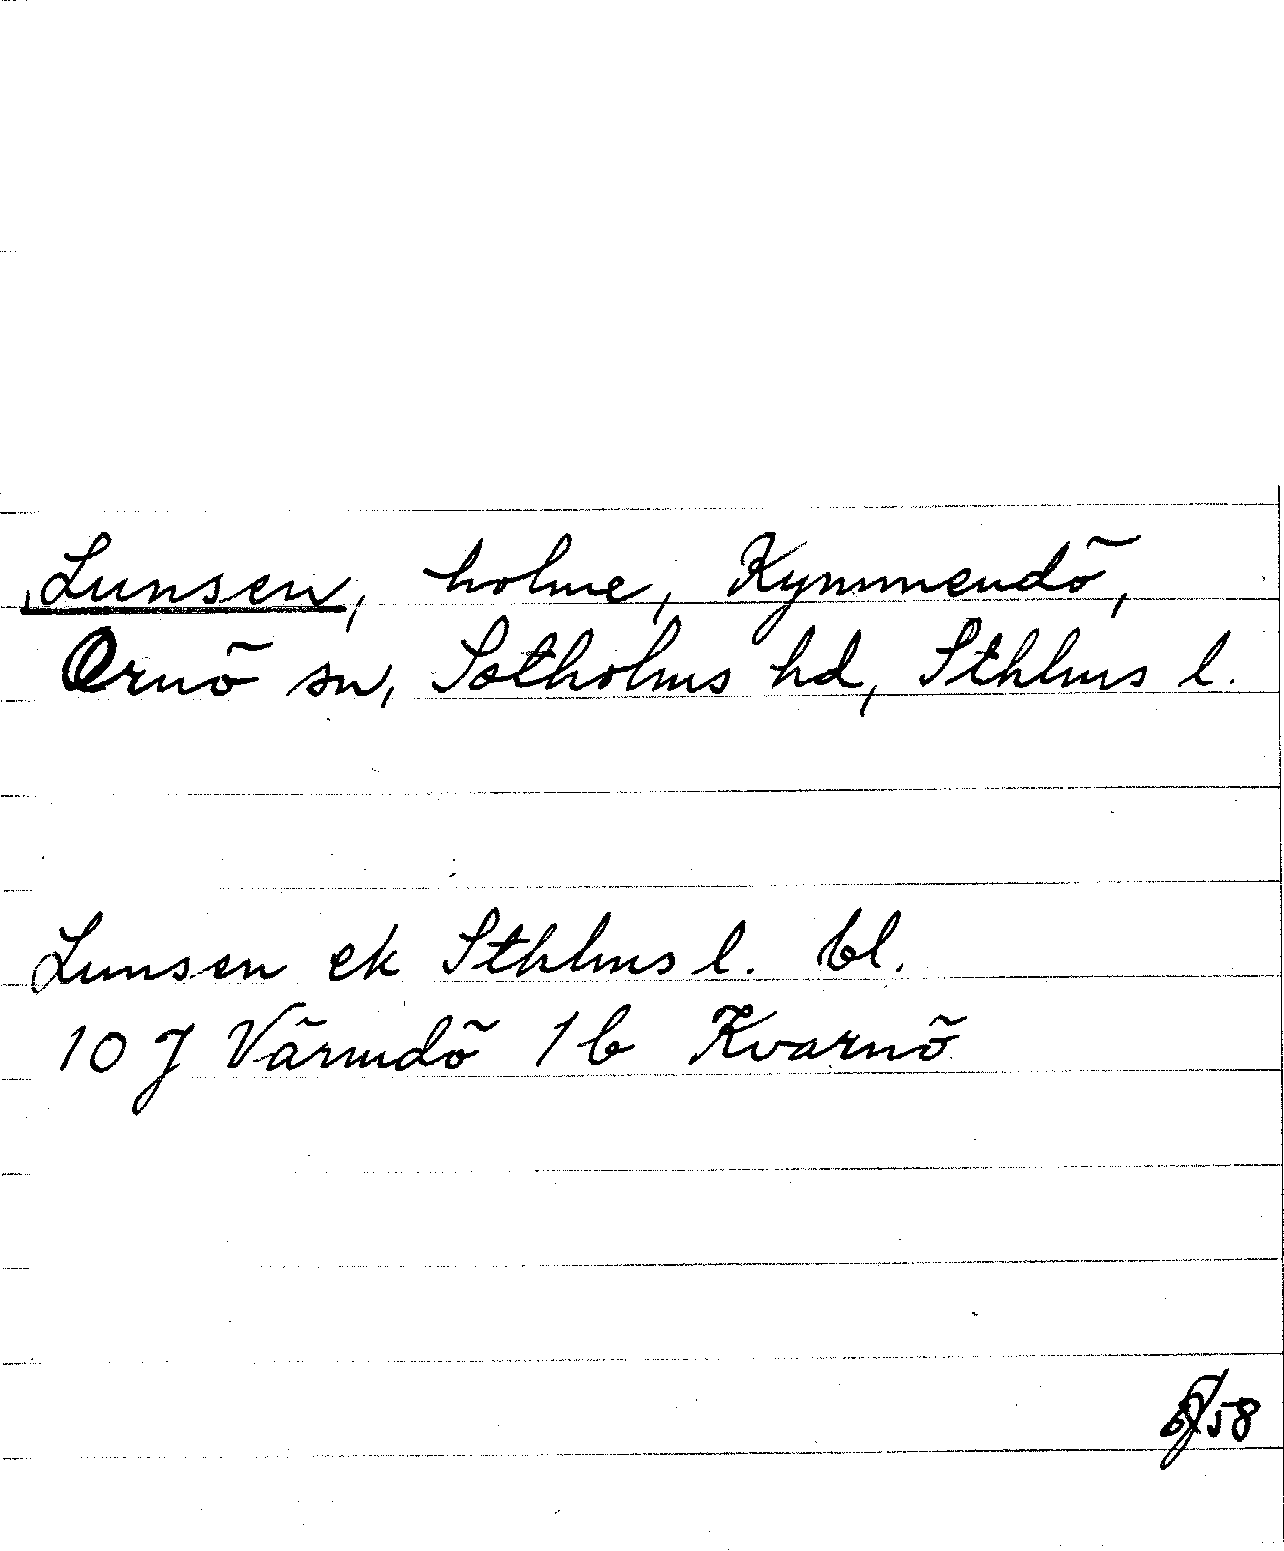 Lunsen, holme, Kymmendö,
Ornö sn, Sotholms hd, Sthlms l.
Lunsen ek Sthlms l. bl.
10 J Värmdö 1 b Kvarnö
58